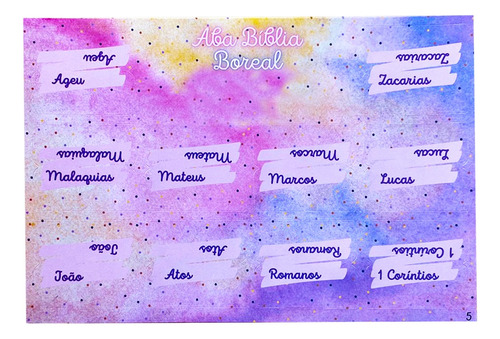 Aba Bíblia
Boreal
Ageu
Ageu
Zacarias
Zacarias
Malaquias
Malaquias
Mateus
Mateus
Marcos
Marcos
Lucas
Lucas
João
João
Atos
Atos
Romanos
Romanos
1 Coríntios
1 Coríntios
5